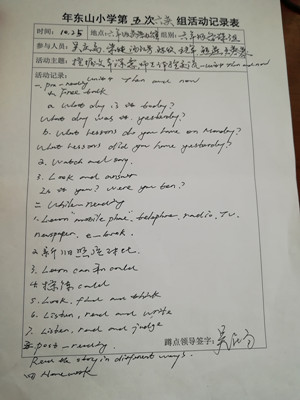 年东山小学第五次六英组活动记录表
时间: 10.25 地点: 六年级英语办公室 组别: 六年级英语组
参与人员:
活动主题: unit then and now
活动记录:
一. pre-reading unit Then and now
1. Free talk
a. What day is it today?
What day was it yesterday?
b. What lessons do you have on Monday?
What lessons did you have yesterday?
2. Watch and say.
3. Look and answer
Is it you? Were you ten?
二 While-reading
1. Learn "mobile phone", telephone, radio, TV,
newspaper, e-book.
2. 新旧照片对比
3. Learn can和could
4. 操练could
5. Look, find and think
6. Listen, read and write
7. Listen, read and judge
三. post-reading
Read the story in different ways.
四 Homework
蹲点领导签字: